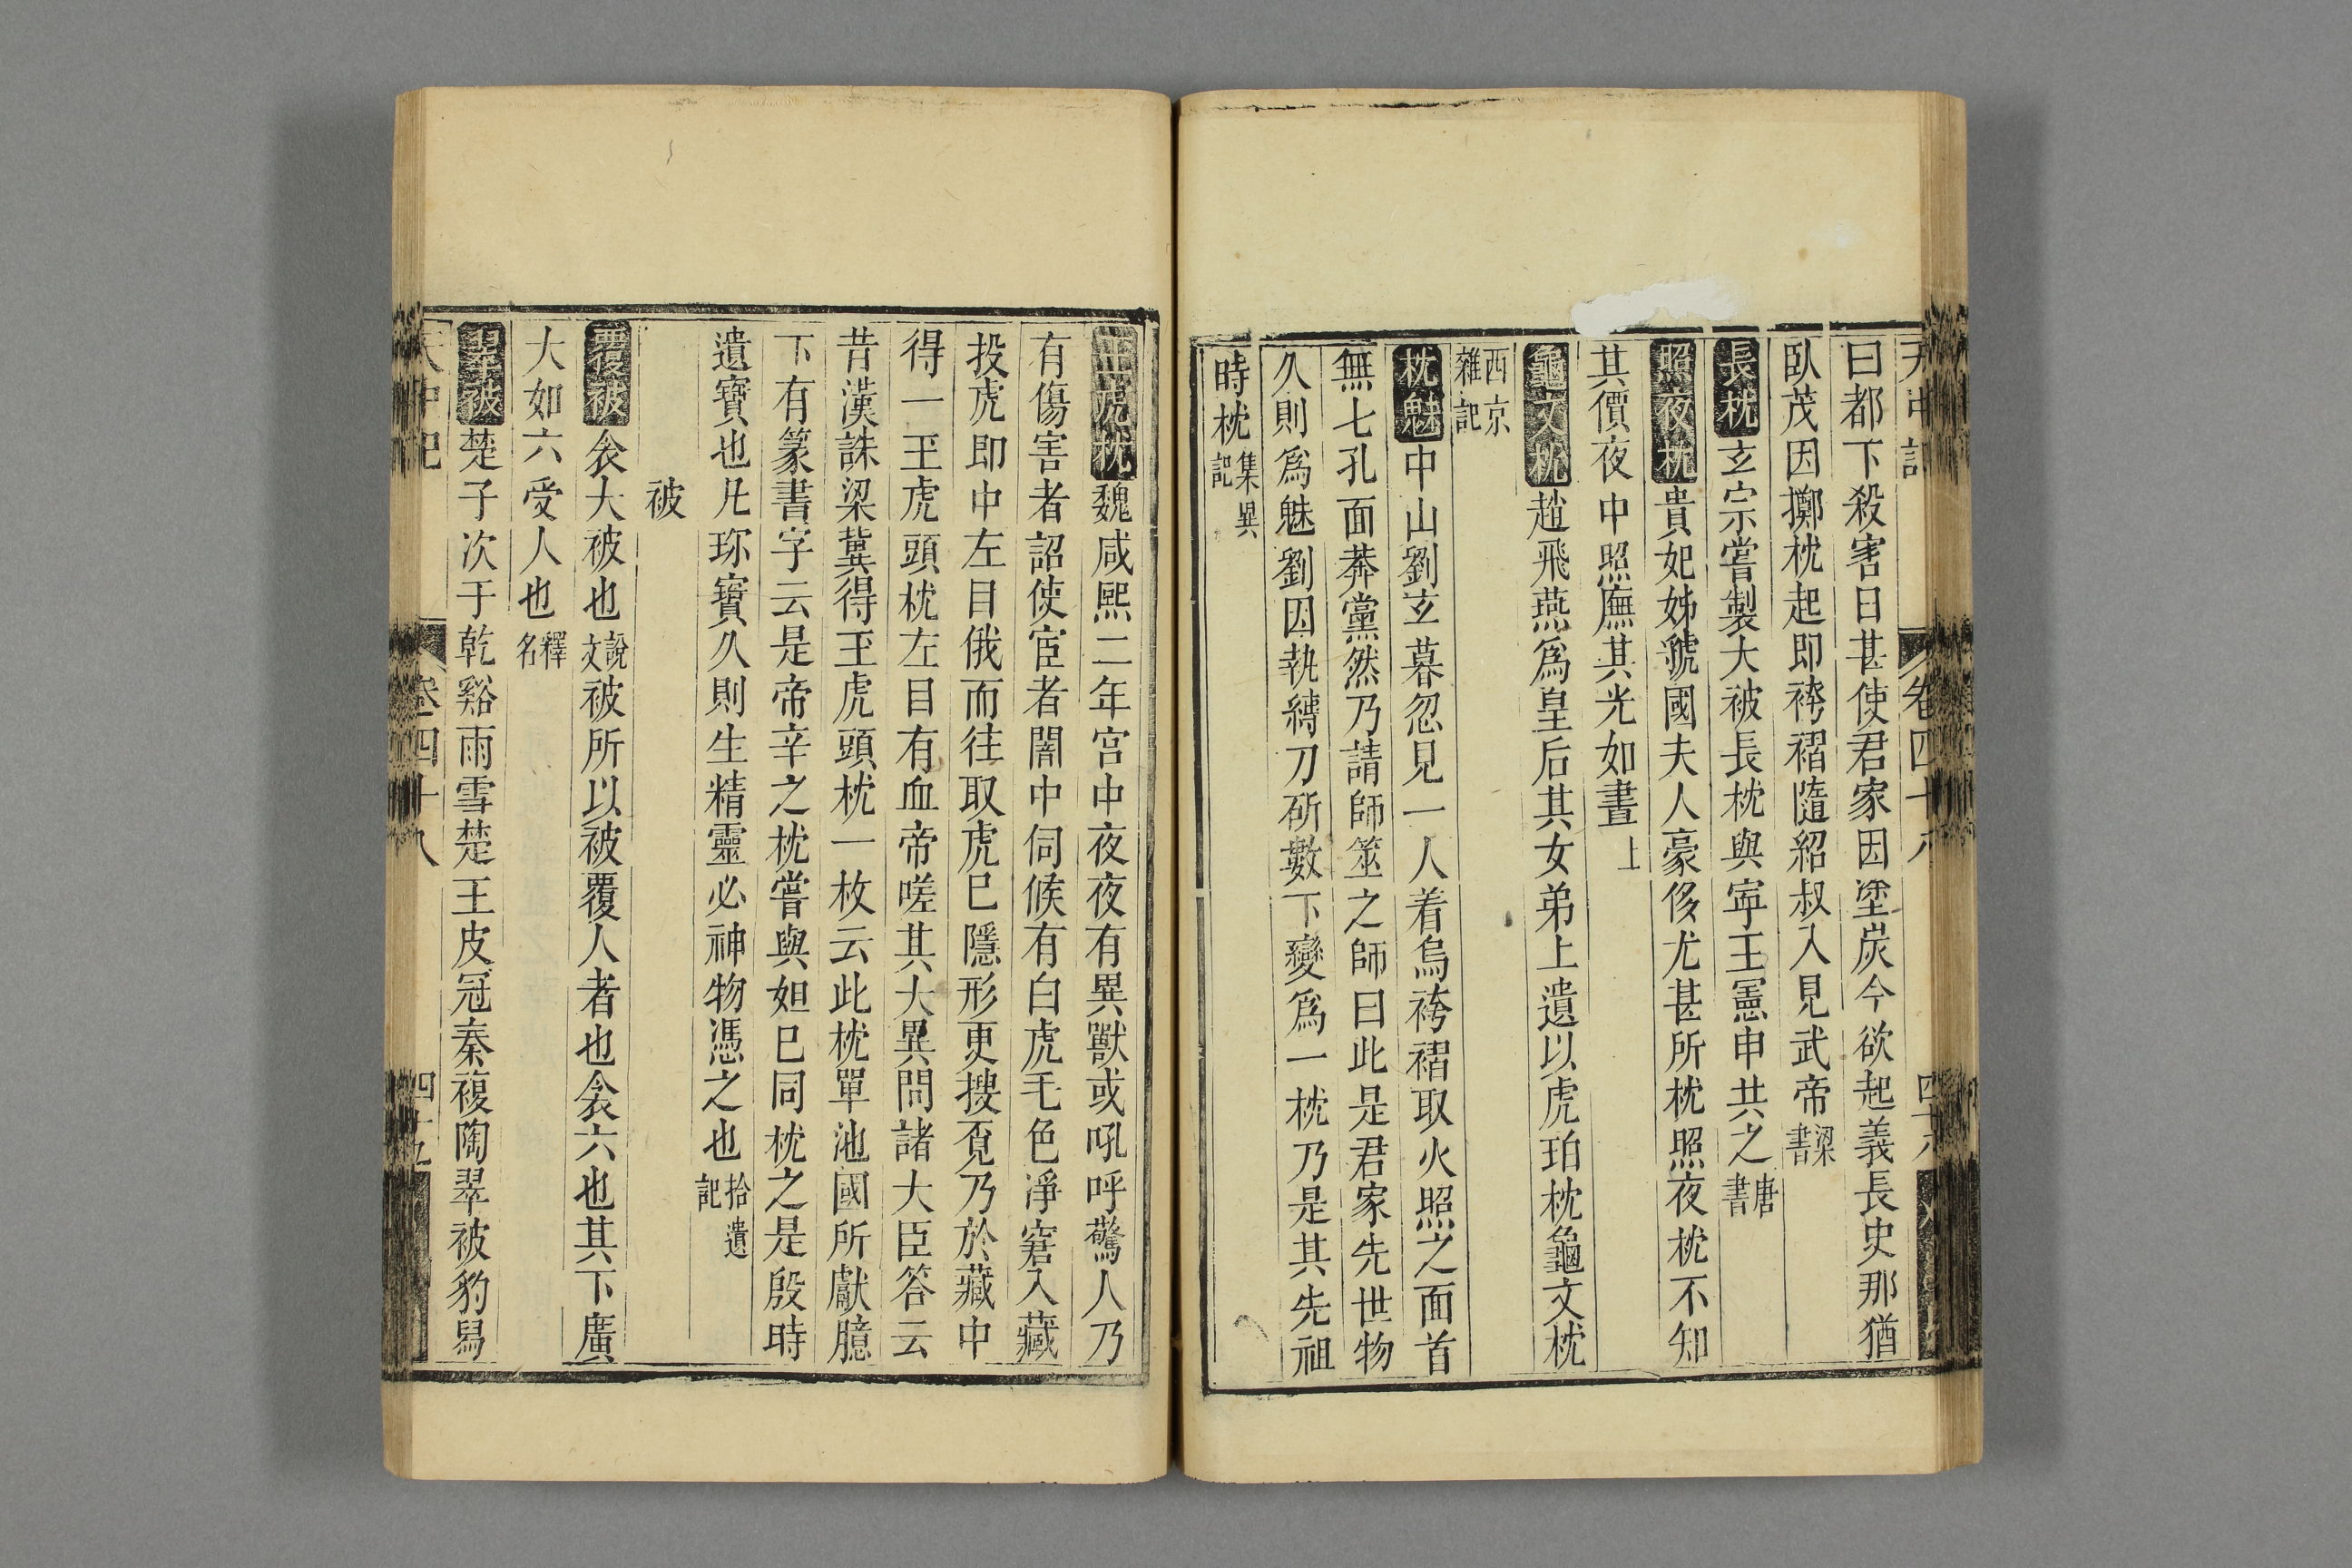 天中記 卷四十八 四十八
曰都下殺害日甚使君家因塗炭今欲起義長史那猶
臥茂因擲枕起即袴褶隨紹叔入見武帝梁書
長枕玄宗嘗製大被長枕與寧王憲申共之唐書
照夜枕貴妃姊虢國夫人豪侈尤甚所枕照夜枕不知
其價夜中照廡其光如晝上
龜文枕趙飛燕爲皇后其女弟上遺以虎珀枕龜文枕
西京雜記
枕魅中山劉玄暮忽見一人着烏袴褶取火照之面首
無七孔面莾黨然乃請師筮之師曰此是君家先世物
久則爲魅劉因執縛刀斫數下變爲一枕乃是其先祖
時枕集異記
玉虎枕魏咸熙二年宫中夜夜有異獸或吼呼驚人乃
有傷害者詔使宦者闇中伺候有白虎毛色淨窘入藏
投虎即中左目俄而往取虎巳隱形更搜覓乃於藏中
得一玉虎頭枕左目有血帝嗟其大異問諸大臣答云
昔漢誅梁冀得玉虎頭枕一枚云此枕單池國所獻臆
下有篆書字云是帝辛之枕嘗與妲巳同枕之是殷時
遺寶也凡珎寶久則生精靈必神物憑之也拾遺記
被
覆被衾大被也說文被所以被覆人者也衾六也其下廣
大如六受人也釋名
翠被楚子次于乾谿雨雪楚王皮冠秦複陶翠被豹舄
天中記 卷四十八 四十九